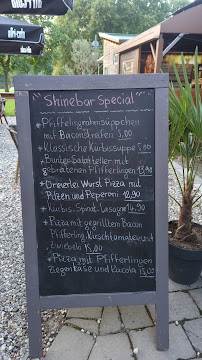 "Shinebar Special"
* Pfifferlingrahmsüppchen
mit Baconstreifen 5,00
* Klassische Kürbissuppe
* Bunter Salatteller mit
gebratenen Pfifferlingen 13,90
* Dreierlei Wurst Pizza mit
Pilzen und Peperoni 12,90
* Kürbis-Spinat-Lasagne 14,90
* Pizza mit gegrilltem Bacon
Pfifferling, Kirschtomaten und
Zwiebeln 15,00
* Pizza mit Pfifferlingen
Ziegenkäse und Rucola 15,00